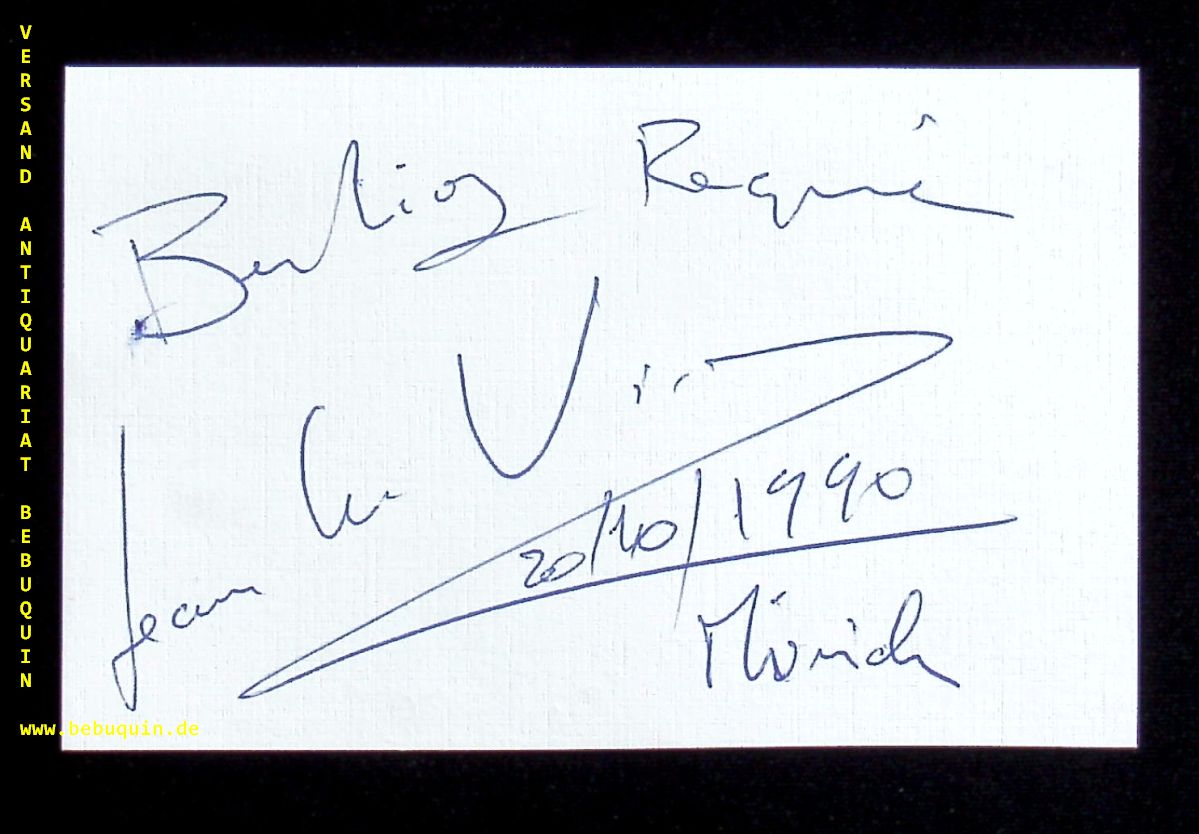 VERSAND ANTIQUARIAT BEBUQUIN
Berlioz Requiem
Jean Luc
20/10/1990
Münich
www.bebuquin.de